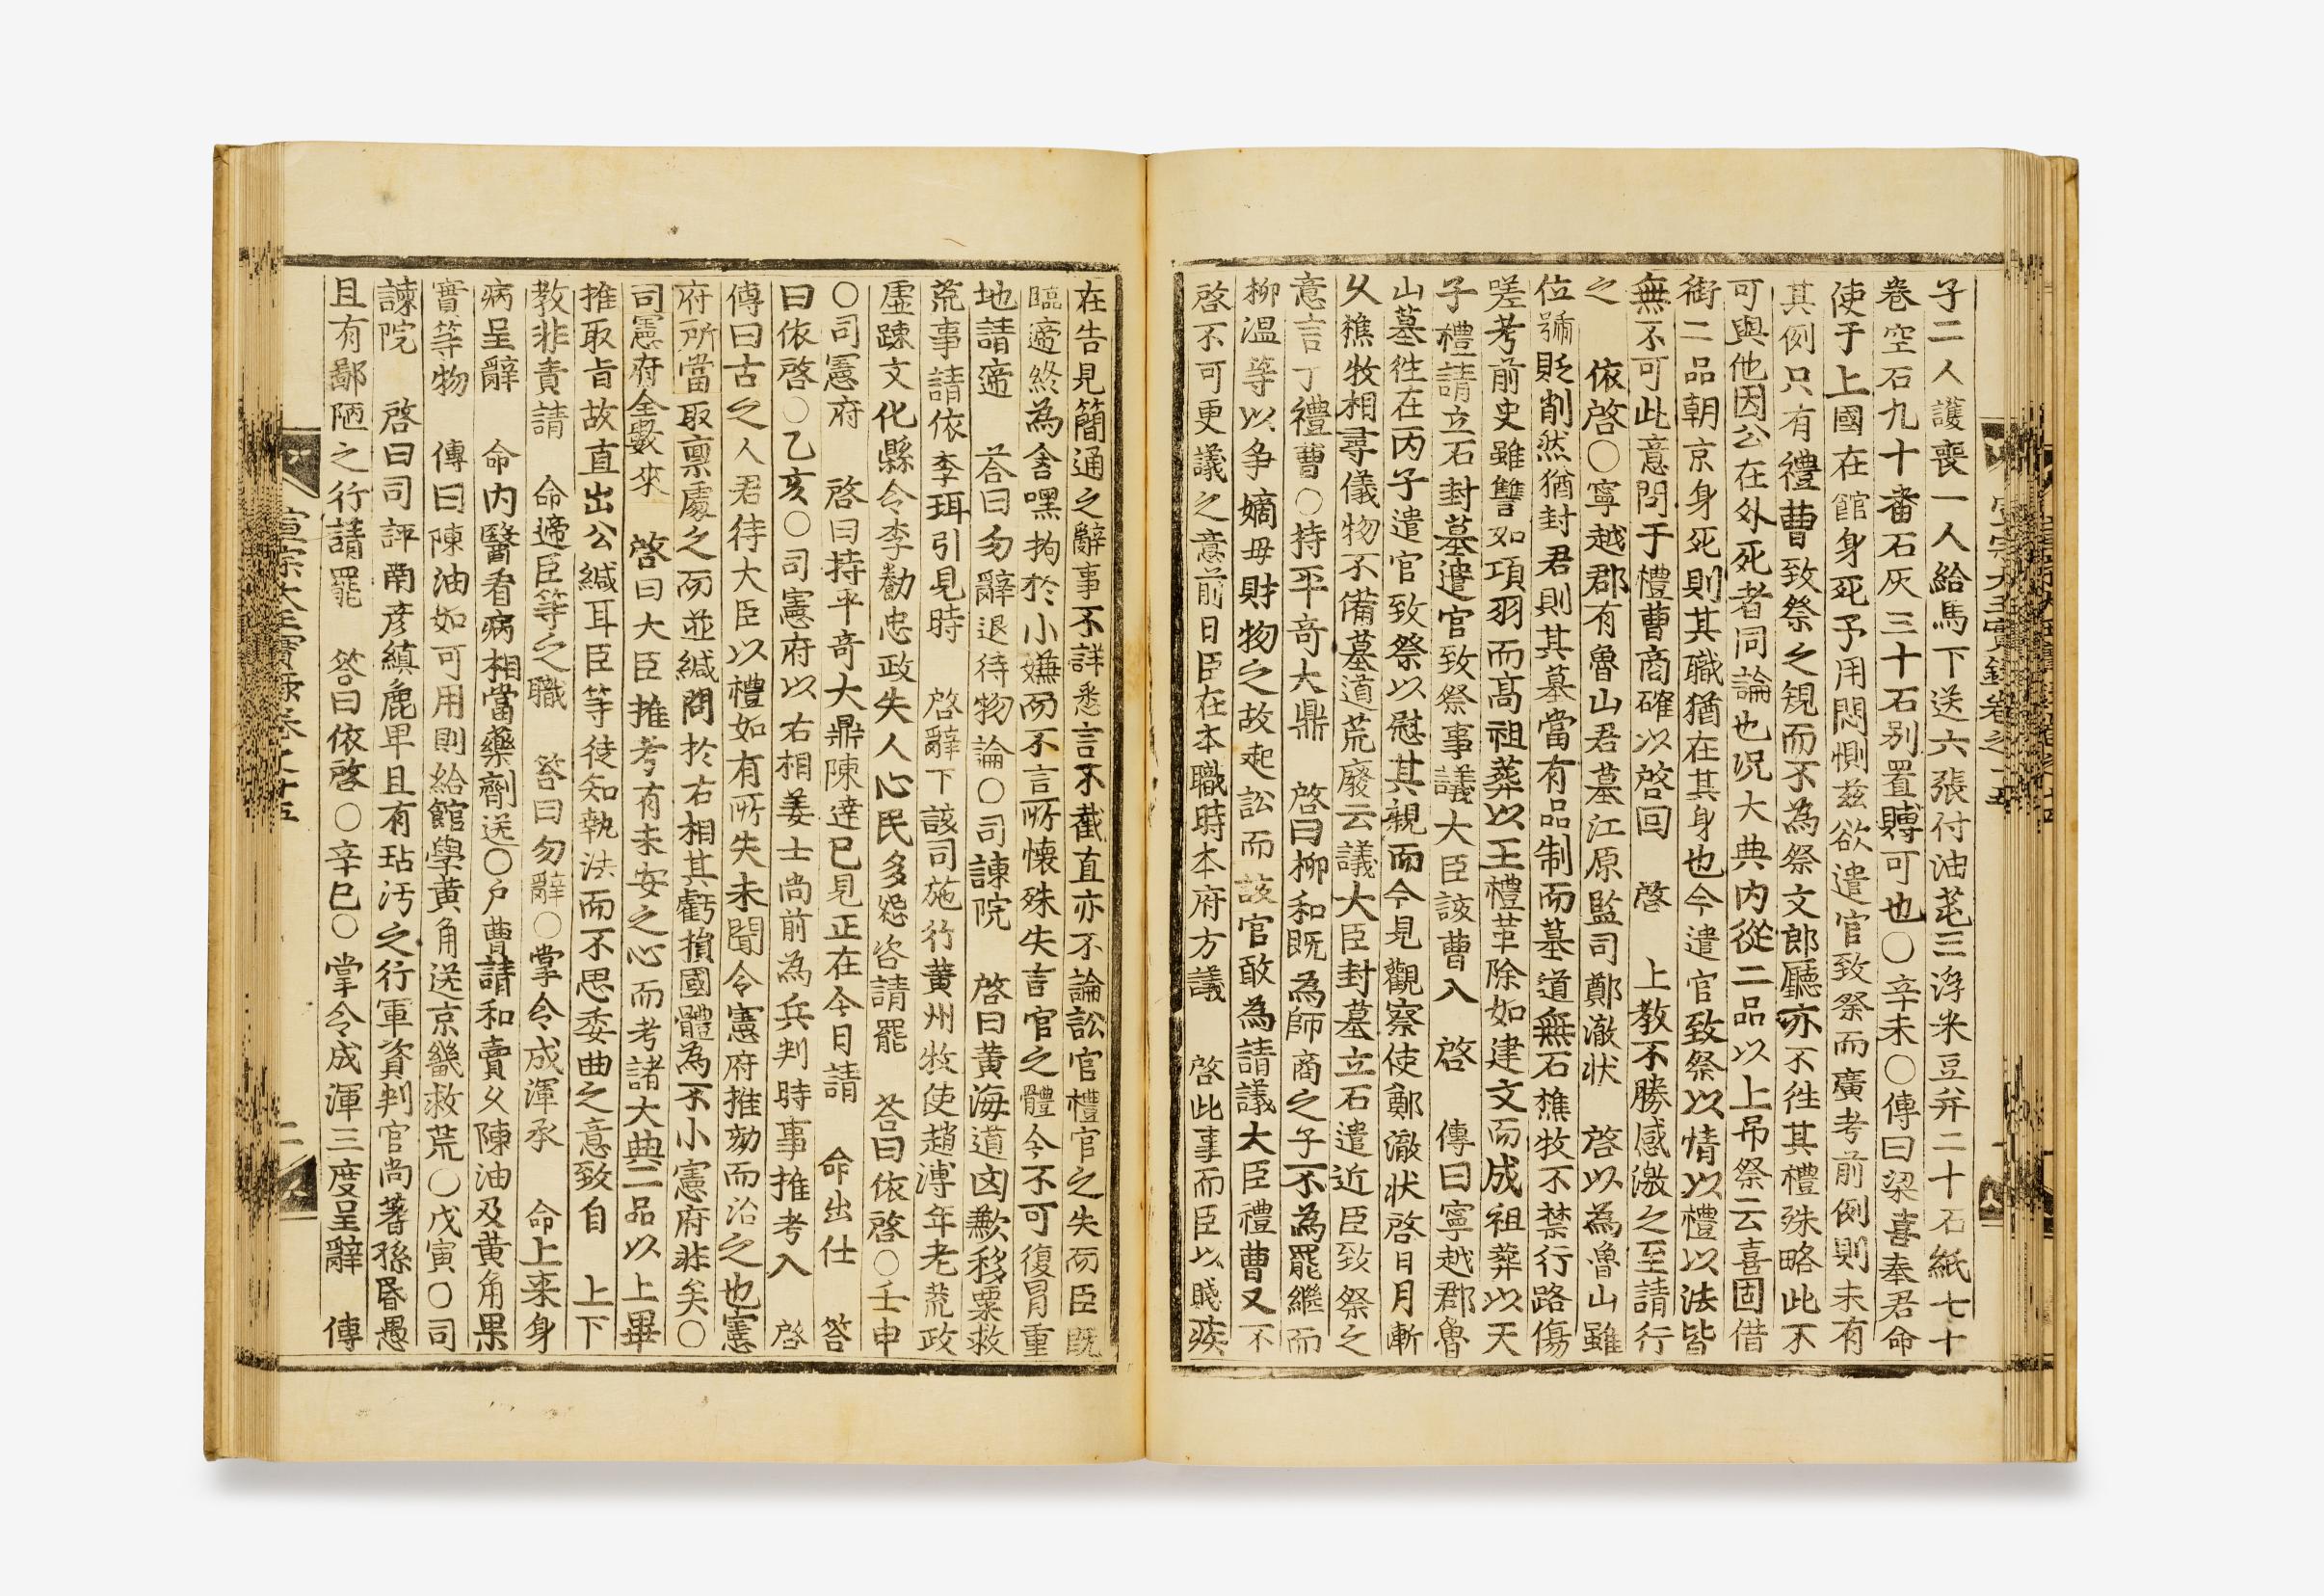 子二人護喪一人給馬下送六張付油芚三浮米豆并二十石紙七十
卷空石九十番石灰三十石别置賻可也○辛未○傳曰梁喜奉君命
使于上國在館身死予用悶惻兹欲遣官致祭而廣考前例則未有
其例只有禮曹致祭之規而不為祭文郎廳亦不徃其禮殊略此不
可與他因公在外死者同論也况大典内從二品以上吊祭云喜固借
銜二品朝京身死則其職猶在其身也今遣官致祭以情以禮以法皆
無不可此意問于禮曹商確以啓回 啓 上教不勝感激之至請行
之 依啓○寧越郡有魯山君墓江原監司鄭澈狀 啓以為魯山雖
位號貶削然猶封君則其墓當有品制而墓道無石樵牧不禁行路傷
嗟考前史雖讐如項羽而高祖葬以王禮革除如建文而成祖葬以天
子禮請立石封墓遣官致祭事議大臣該曹入 啓 傳曰寧越郡魯
山墓徃在丙子遣官致祭以慰其親而今見觀察使鄭澈狀啓日月漸
久樵牧相尋儀物不備墓道荒廢云議大臣封墓立石遣近臣致祭之
意言于禮曹○持平竒大鼎 啓曰柳和既為師商之子不為罷繼而
柳溫等以争嫡毋財物之故起訟而該官敢為請議大臣禮曹又不
啓不可更議之意前日臣在本職時本府方議 啓此事而臣以賤疾
在告見簡通之辭事不詳悉言不截直亦不論訟官禮官之失而臣既
臨遞終為含嘿拘於小嫌而不言所懷殊失言官之體今不可復冒重
地請遞 荅曰勿辭退待物論○司諫院 啓曰黄海道凶歉移粟救
荒事請依李珥引見時 啓辭下該司施行黄州牧使趙溥年老荒政
虛踈文化縣令李勸忠政失人心民多怨咨請罷 荅曰依啓○壬申
○司憲府 啓曰持平竒大鼎陳達已見正在今日請 命出仕 答
曰依啓○乙亥○司憲府以右相姜士尚前為兵判時事推考入 啓
傳曰古之人君待大臣以禮如有所失未聞令憲府推劾而治之也憲
府所當取禀處之而並緘問於右相其虧損國體為不小憲府非矣○
司憲府全數來 啓曰大臣推考有未安之心而考諸大典二品以上畢
推取旨故直出公緘耳臣等徒知執法而不思委曲之意致自 上下
教非責請 命遞臣等之職 答曰勿辭○掌令成渾承 命上来身
病呈辭 命内醫看病相當藥劑送○戶曹請和賣久陳油及黄角果
實等物 傳曰陳油如可用則給館學黄角送京畿救荒○戊寅○司
諫院 啓曰司評南彦縝麁卑且有玷汚之行軍資判官尚蓍孫昏愚
且有鄙陋之行請罷 答曰依啓○辛巳○掌令成渾三度呈辭 傳
宣宗大王實録卷之十五